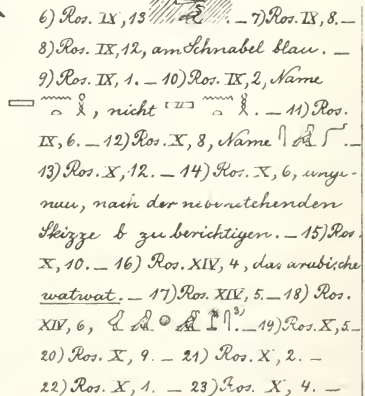 6) Ros. IX, 13 . — 7) Ros. IX, 8. —
8) Ros. IX, 12, am Schnabel blau. —
9) Ros. IX, 1. — 10) Ros. IX, 2, Name
, nicht . — 11) Ros.
IX, 6. — 12) Ros. X, 8, Name . —
13) Ros. X, 12. — 14) Ros. X, 6, unge-
nau, nach der nebenstehenden
Skizze b zu berichtigen. — 15) Ros.
X, 10. — 16) Ros. XIV, 4, das arabische
watwat. — 17) Ros. XIV, 5. — 18) Ros.
XIV, 6, 3) . — 19) Ros. X, 5. —
20) Ros. X, 9. — 21) Ros. X, 2. —
22) Ros. X, 1. — 23) Ros. X, 4. —